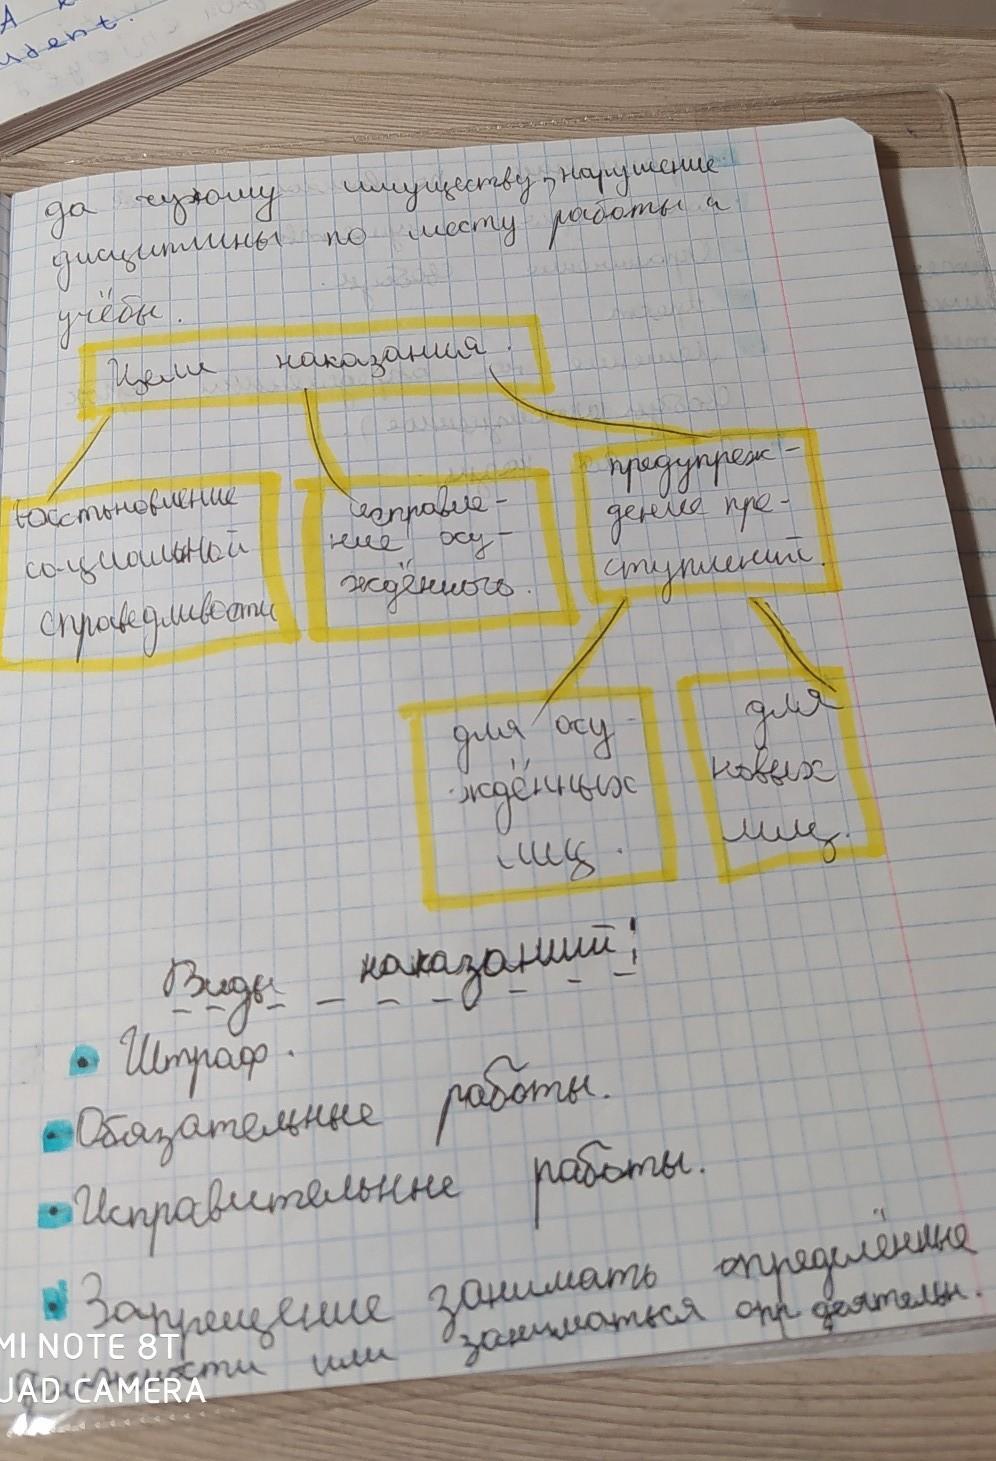 А к
udent.
да чужому имуществу, нарушение
дисциплины по месту работы и
учёбы.
Цели наказания.
Восстановление
социальной
справедливости
исправле-
ние осу-
ждённого.
предупреж-
дение пре-
ступлений.
для осу-
ждённых
лиц.
для
новых
лиц.
Виды наказаний:
Штраф.
Обязательные работы.
Исправительные работы.
Запрещение занимать определённые
должности или заниматься опр деятельн.
MI NOTE 8T
UAD CAMERA